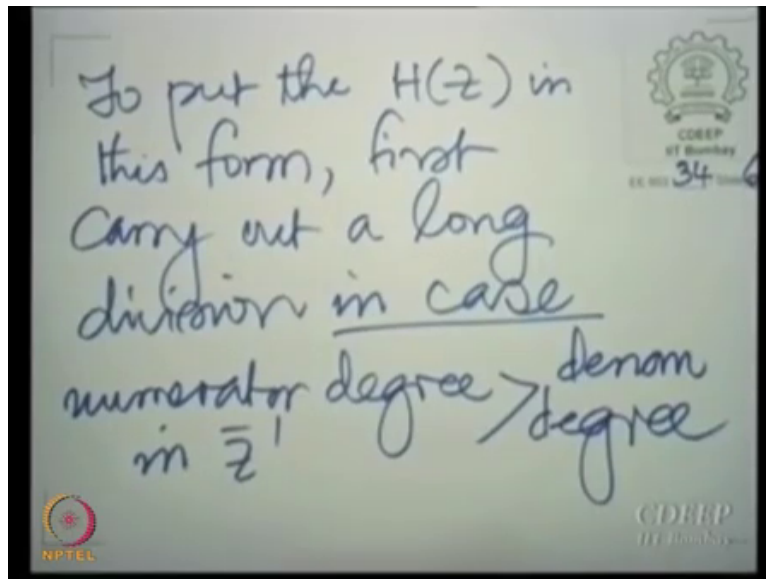 To put the H(Z) in
this form, first
carry out a long
division in case
numerator degree > denom
in z⁻¹ degree
CDEEP
IIT Bombay
34
6
NPTEL
CDEEP
IIT Bombay